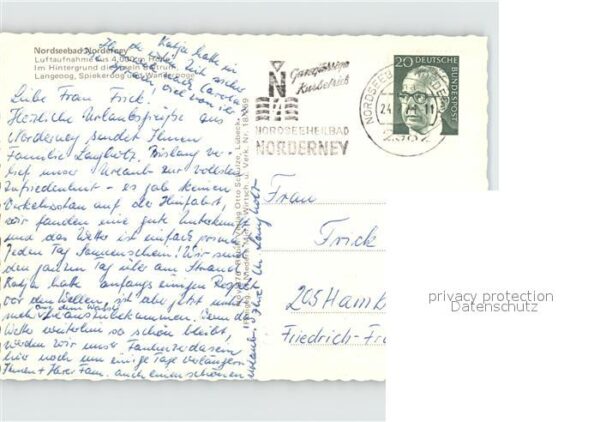 Nordseebad Norderney
Luftaufnahme aus 4.000 m Höhe
Im Hintergrund die Inseln Baltrum,
Langeoog, Spiekeroog und Wangerooge
Katja hatte in
Liebe Frau Frick!
Herzliche Urlaubsgrüße aus
Norderney sendet Ihnen
Familie Langholz. Bislang ver-
lief unser Urlaub zur vollsten
Zufriedenheit - es gab keinen
Verkehrsstau auf der Hinfahrt,
wir fanden eine gute Unterkunft
und das Wetter ist einfach prima.
Jeden Tag Sonnenschein! Wir sind
den ganzen Tag über am Strand.
Katja hatte anfangs einigen Respekt
vor den Wellen, ist aber jetzt nicht
mehr aus dem Wasser herauszubekommen. Wenn das
Wetter weiterhin so schön bleibt,
werden wir unser Faulenzerdasein
hier noch um einige Tage verlängern.
Ihnen + Ihrer Fam. auch einen schönen
Urlaub, Ihre Langholz
Ganzjähriger
Kurbetrieb
N
NORDSEEHEILBAD
NORDERNEY
NORDSEEBAD NORDERNEY
24
11
2982
20
DEUTSCHE BUNDESPOST
Frau
Frick
205 Hamb
Friedrich-Fr
privacy protection
Datenschutz